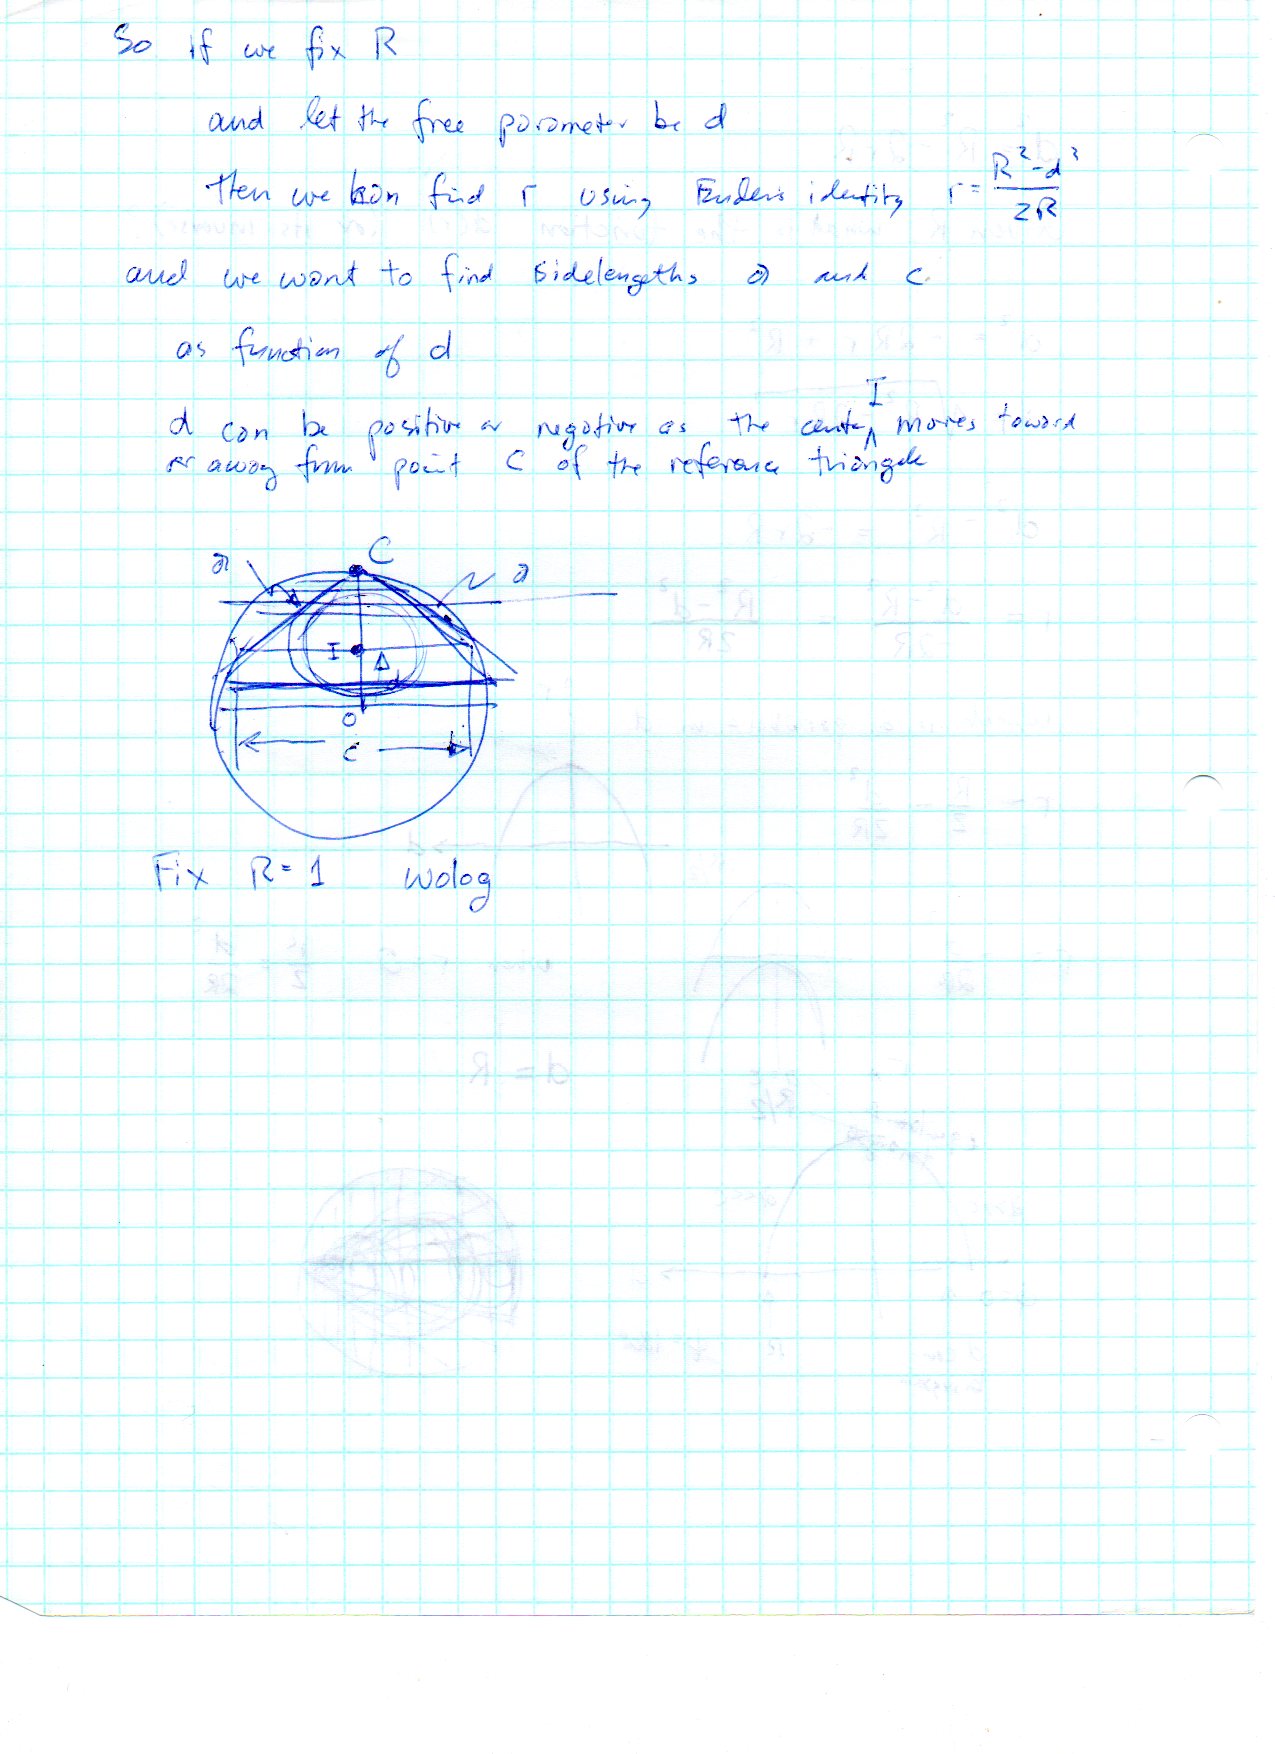 So if we fix R
and let the free parameter be d
then we can find r using Euler's identity r = \frac{R^2 - d^2}{2R}
and we want to find sidelengths a and c.
as function of d
d can be positive or negative as the center I moves toward
or away from point C of the reference triangle
C
a
a
I
Δ
d
O
c
Fix R = 1 wolog